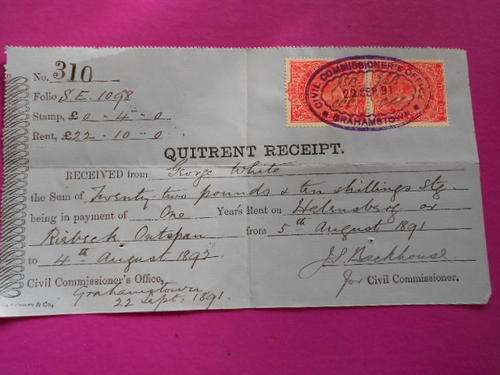 No. 310
Folio S.E. 1098
Stamp, £0-4-0
Rent, £22-10-0
CIVIL COMMISSIONER'S OFFICE
22 SEP 91
GRAHAMSTOWN
QUITRENT RECEIPT.
RECEIVED from George White
the Sum of Twenty two pounds & ten shillings Stg.
being in payment of One Year's Rent on Helensberg or
Risbeck Outspan from 5th August 1891
to 4th August 1892
J S Backhouse
Civil Commissioner's Office, for Civil Commissioner.
Grahamstown
22 Sept. 1891.
& Co.